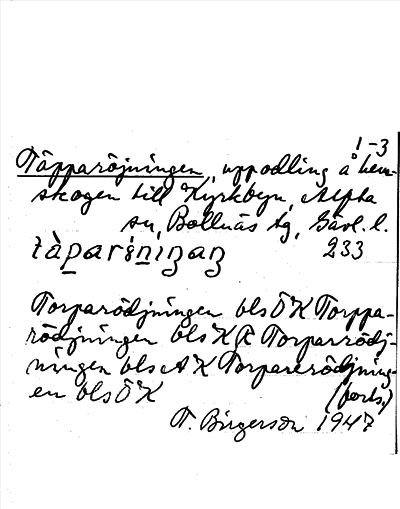 1-3
Täpparöjningen, uppodling å hem-
skogen till Kyrkbyn, Alfta
sn, Bollnäs tg, Gävl. l.
tàparöniŋaŋ 233
Torparödjningen bls ÖK Torppa-
rödjningen bls KR Torparrödj-
ningen bls AK Torparerödjning-
en bls ÖK (forts.)
T. Birgerson 1947